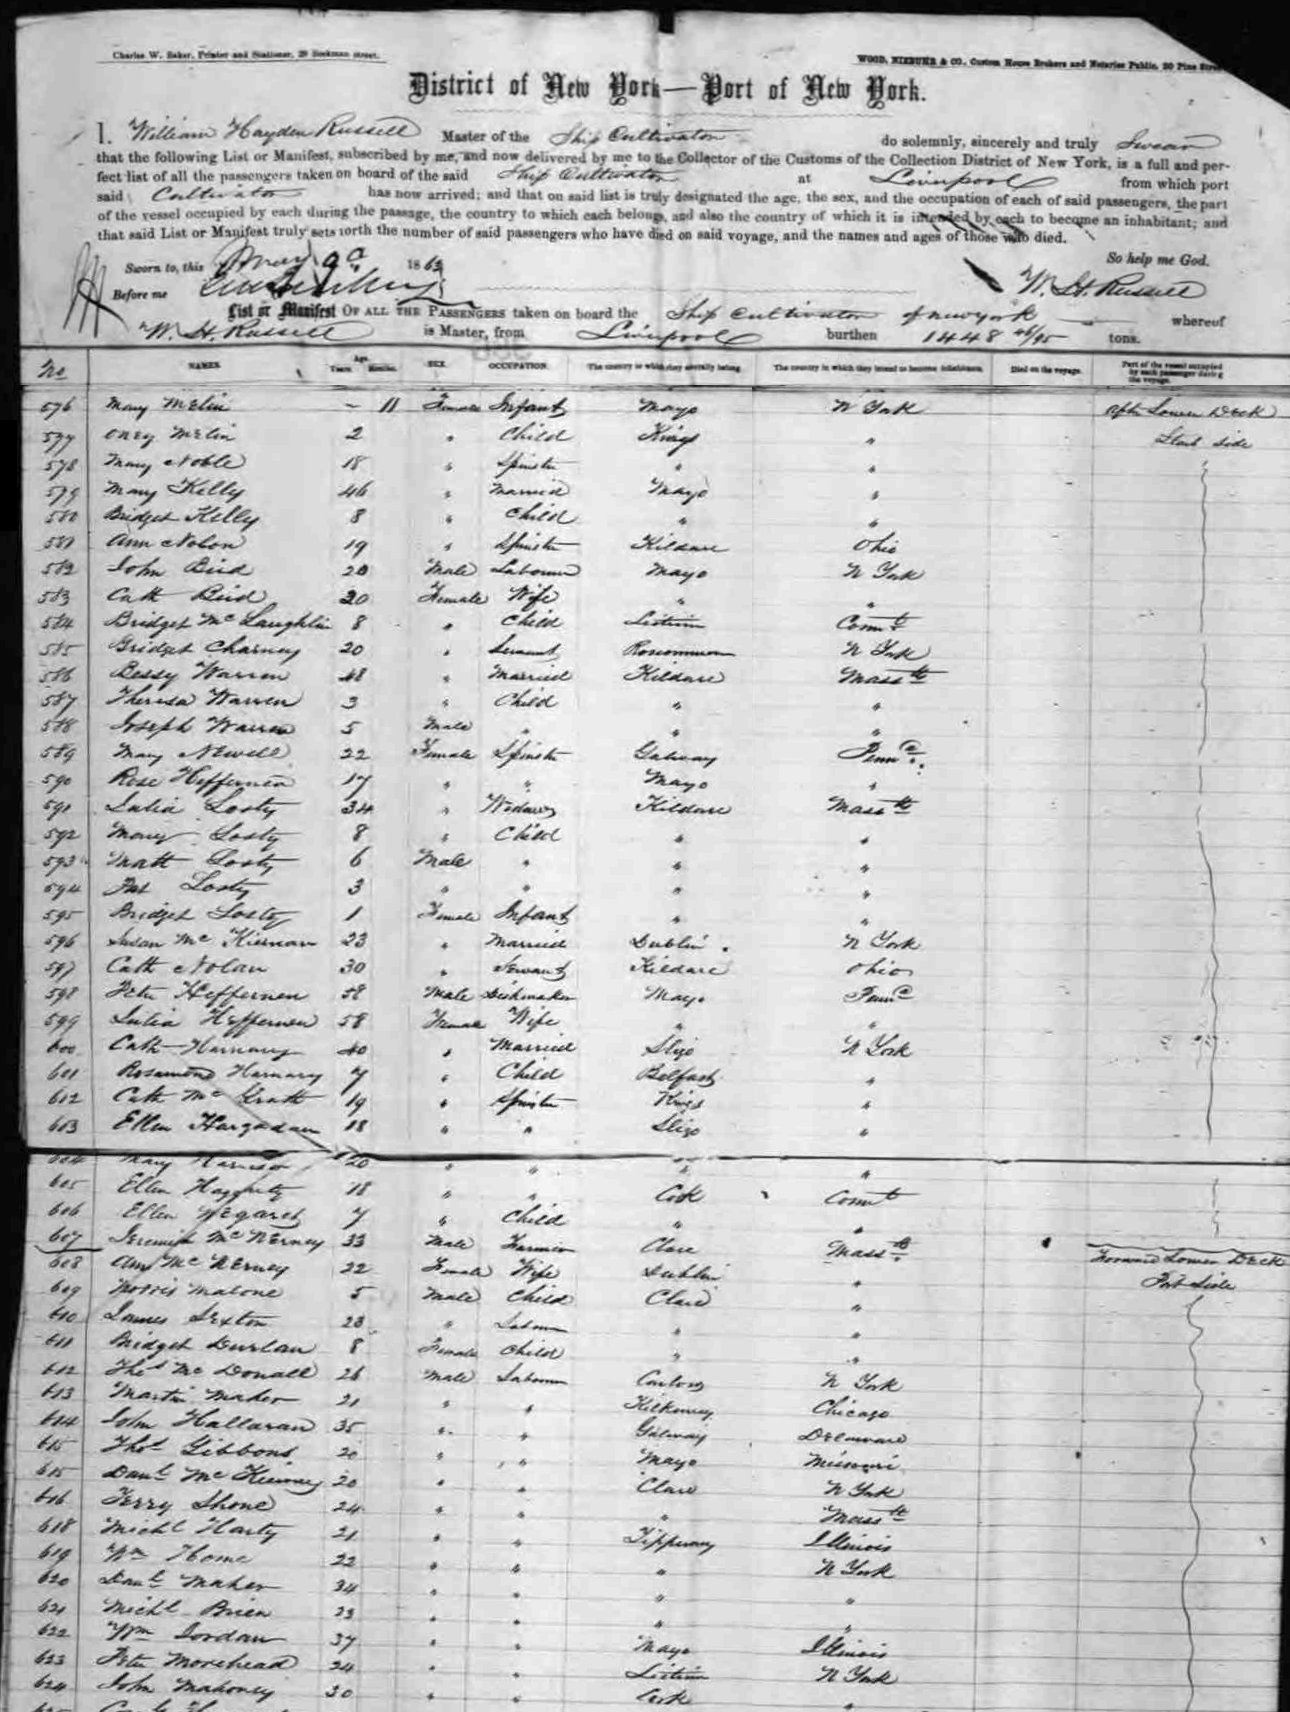 Charles W. Baker, Printer and Stationer, 29 Beekman street.
WOOD, NIEBUHR & CO., Custom House Brokers and Notaries Public, 20 Pine Stre
District of New York—Port of New York.
I. William Hayden Russell Master of the Ship Cultivator do solemnly, sincerely and truly Swear
that the following List or Manifest, subscribed by me, and now delivered by me to the Collector of the Customs of the Collection District of New York, is a full and per-
fect list of all the passengers taken on board of the said Ship Cultivator at Liverpool from which port
said Cultivator has now arrived; and that on said list is truly designated the age, the sex, and the occupation of each of said passengers, the part
of the vessel occupied by each during the passage, the country to which each belongs, and also the country of which it is intended by each to become an inhabitant; and
that said List or Manifest truly sets forth the number of said passengers who have died on said voyage, and the names and ages of those who died.
So help me God.
Sworn to, this May 9 1863
W. H. Russell
Before me
List or Manifest OF ALL THE PASSENGERS taken on board the Ship Cultivator of new york whereof
W. H. Russell is Master, from Liverpool burthen 1448 46/95 tons.
No NAMES. Age Years. Months. SEX. OCCUPATION. The country to which they severally belong. The country in which they intend to become inhabitants. Died on the voyage. Part of the vessel occupied by each passenger during the voyage.
576 Mary - 11 Female Infant Mayo N York After Lower Deck
577 2 " Child Kings " Starb side
578 Mary Noble 18 " Spinster " "
579 Mary Kelly 46 " Married Mayo "
580 Bridget Kelly 8 " Child " "
581 Ann Nolon 19 " Spinster Kildare Ohio
582 John Bird 20 Male Labourer Mayo N York
583 Cath Bird 20 Female Wife " "
584 Bridget McLaughlin 8 " Child Leitrim Connt
585 Bridget Charney 20 " Servant Roscommon N York
586 Bessy Warren 48 " Married Kildare Massts
587 Theresa Warren 3 " Child " "
588 Joseph Warren 5 Male " " "
589 Mary Newell 22 Female Spinster Galway Penna
590 Rose Heffernen 17 " " Mayo "
591 Julia Losty 34 " Widow Kildare Massts
592 Mary Losty 8 " Child " "
593 Matt Losty 6 Male " " "
594 Jas Losty 3 " " " "
595 Bridget Losty 1 Female Infant " "
596 Susan McKiernan 23 " Married Dublin N York
597 Cath Nolan 30 " Servant Kildare Ohio
598 Peter Heffernen 58 Male Mayo Penna
599 Julia Heffernen 58 Female Wife " "
600 Cath Harnary 40 " Married Sligo N York
601 Rosamond Harnary 7 " Child Belfast "
612 Cath McGrath 19 " Spinster Kings "
603 Ellen Hargadan 18 " " Sligo "
604 Mary Harrison 20 " " " "
605 Ellen Haggerty 18 " " Cork Connt
606 Ellen 7 " Child " "
607 Jeremiah McNerney 33 Male Farmer Clare Massts Forward Lower Deck
608 Ann McNerney 22 Female Wife Dublin " Port Side
609 Morris Malone 5 Male Child Clare "
610 James Sexton 23 " Labour " "
611 Bridget Durlan 8 Female Child " "
612 Thos McDonall 26 Male Labourer Carlow N York
613 Martin Maher 21 " " Kilkenny Chicago
614 John Hallaran 35 " " Galway Delaware
615 Thos Gibbons 20 " " Mayo Missouri
615 Danl McKierney 20 " " Clare N York
616 Terry Shone 24 " " " Massts
618 Michl Harty 21 " " Tipperary Illinois
619 Wm Home 22 " " " N York
620 Danl Maher 34 " " " "
621 Michl Brien 23 " " " "
622 Wm Jordan 37 " " Mayo Illinois
623 Peter Morehead 24 " " Leitrim N York
624 John Mahoney 30 " " Cork "